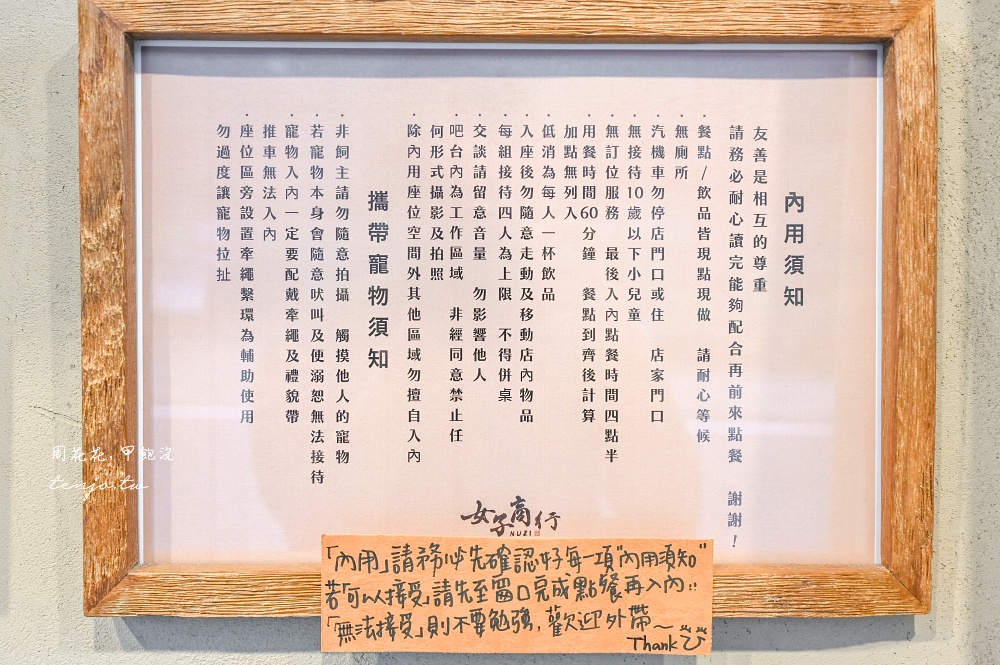 內用須知
友善是相互的尊重
請務必耐心讀完能夠配合再前來點餐 謝謝！
·餐點/飲品皆現點現做 請耐心等候
·無廁所
·汽機車勿停店門口或住 店家門口
·無接待10歲以下小兒童
·無訂位服務 最後入內點餐時間四點半
·用餐時間60分鐘 餐點到齊後計算
加點無列入
·低消為每人一杯飲品
·入座後勿隨意走動及移動店內物品
·每組接待四人為上限 不得併桌
·交談請留意音量 勿影響他人
·吧台內為工作區域 非經同意禁止任
何形式攝影及拍照
·除內用座位空間外其他區域勿擅自入內
攜帶寵物須知
·非飼主請勿隨意拍攝 觸摸他人的寵物
·若寵物本身會隨意吠叫及便溺恕無法接待
·寵物入內一定要配戴牽繩及禮貌帶
推車無法入內
·座位區旁設置牽繩繫環為輔助使用
勿過度讓寵物拉扯
女子商行
NUZI
「內用」請務必先確認好每一項"內用須知"
若「可以接受」請先至窗口完成點餐再入內!!
「無法接受」則不要勉強,歡迎外帶~
Thank
周花花,甲飽沒
tenjo.tw